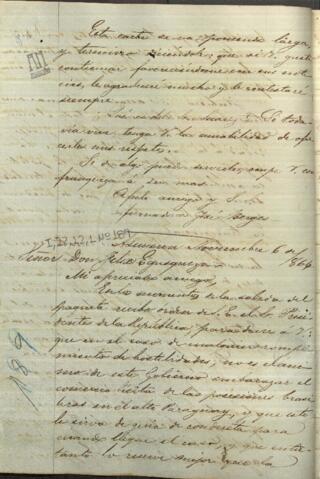 Esta carta se va poniendo larga,
y termino diciendole que si V. quie
continuar favoreciéndome con sus noti
cias, le agradeceré mucho y le contestaré
siempre.
toda
via vive, tenga V. la amabilidad de ofre
cerles mis respetos.
Si de algo puedo servirle, ocupe V. con
franqueza á su mas
Afecto amigo y S.
firmado José Berges
Asuncion Noviembre 6 de 1864
Señor Don Felix Egusquiza
Mi apreciado amigo,
En los momentos de la salida del
paquete recibo orden de S. E. el Sr. Presi
dente de la Republica, para decir á V.
que en el caso de un rompi
miento de hostilidades, no es el ani
mo de este Gobierno embarazar el
comercio licito de las posesiones brasi
leras en el alto Paraguay, y que esto
le sirva de guia de conducta para
cuando llegue el caso, y que entre
tanto lo reserve
1869